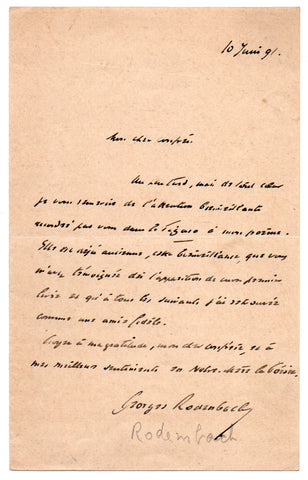 10 Juin 91.
Mon cher confrère
Un peu tard, mais de tout cœur
je vous remercie de l'attention bienveillante
accordée par vous dans le Figaro à mon poème.
Elle est déjà ancienne, cette bienveillance que vous
m'avez témoignée dès l'apparition de mon premier
livre et qu'à tous les suivants j'ai retrouvée
comme une amie fidèle.
Croyez à ma gratitude, mon cher confrère, et à
mes meilleurs sentiments en Notre-
Georges Rodenbach
Rodembach